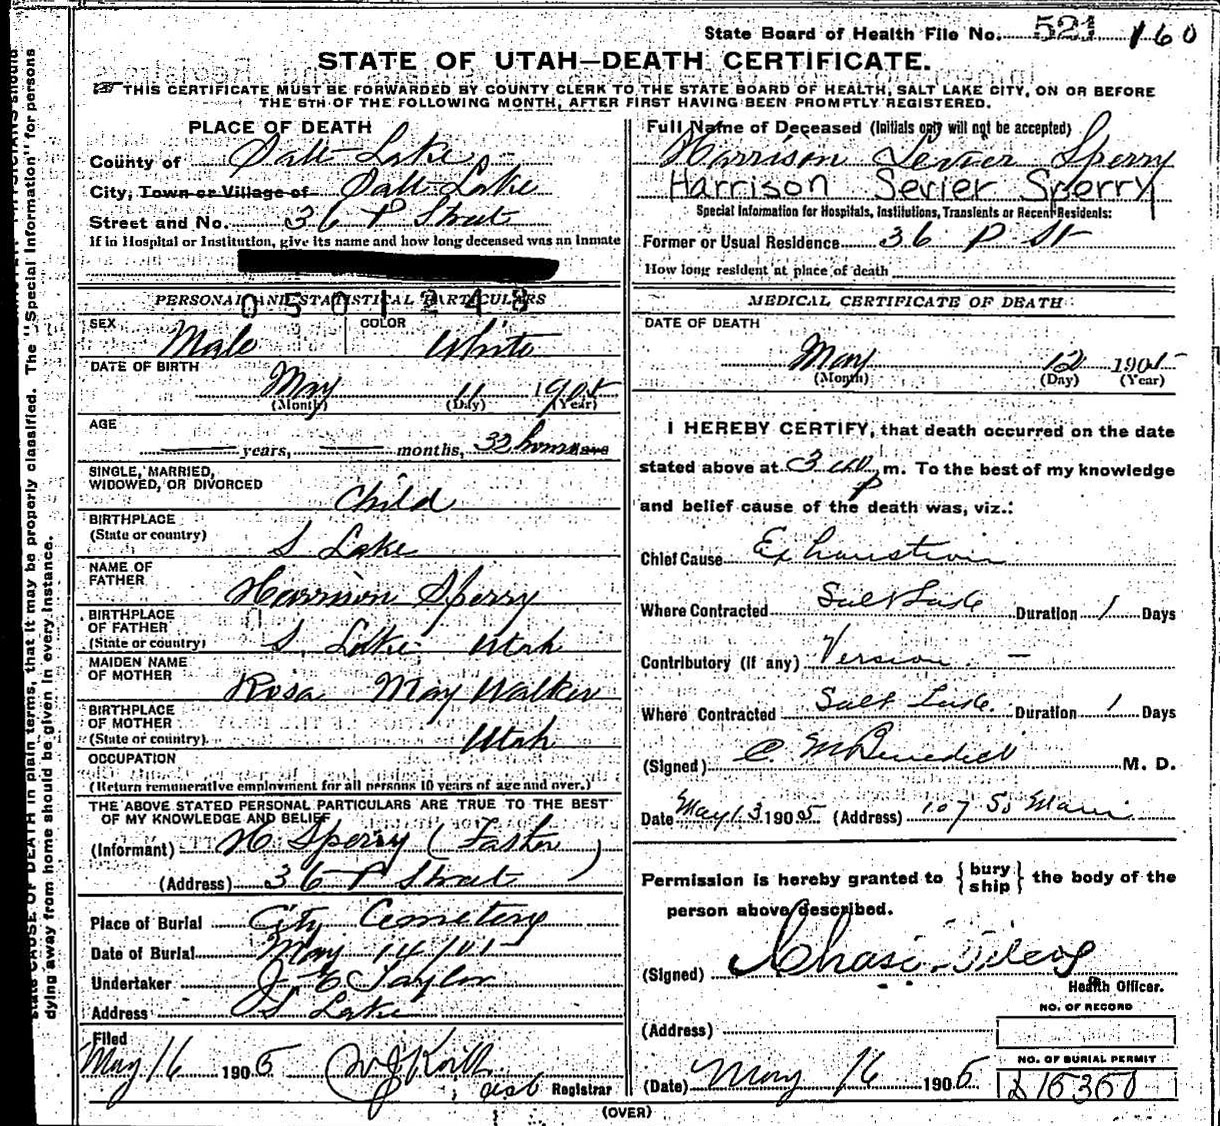 State Board of Health File No. 521 160
STATE OF UTAH—DEATH CERTIFICATE.
THIS CERTIFICATE MUST BE FORWARDED BY COUNTY CLERK TO THE STATE BOARD OF HEALTH, SALT LAKE CITY, ON OR BEFORE
THE 5TH OF THE FOLLOWING MONTH, AFTER FIRST HAVING BEEN PROMPTLY REGISTERED.
PLACE OF DEATH
County of Salt Lake
City, Town or Village of Salt Lake
Street and No. 36 P Street
If in Hospital or Institution, give its name and how long deceased was an Inmate
PERSONAL AND STATISTICAL PARTICULARS
0501248
SEX Male COLOR White
DATE OF BIRTH
May 11 1905
(Month) (Day) (Year)
AGE
years, months, 32 hours
SINGLE, MARRIED,
WIDOWED, OR DIVORCED
Child
BIRTHPLACE
(State or country)
S Lake
NAME OF
FATHER
Harrison Sperry
BIRTHPLACE
OF FATHER
(State or country)
S. Lake Utah
MAIDEN NAME
OF MOTHER
Rosa May Walker
BIRTHPLACE
OF MOTHER
(State or country)
Utah
OCCUPATION
(Return remunerative employment for all persons 10 years of age and over.)
THE ABOVE STATED PERSONAL PARTICULARS ARE TRUE TO THE BEST
OF MY KNOWLEDGE AND BELIEF
(Informant) H Sperry (Father)
(Address) 36 P Street
Place of Burial City Cemetery
Date of Burial May 14/05
Undertaker J. E Taylor
Address S Lake
Filed
May 16 1905
Registrar
Full Name of Deceased (Initials only will not be accepted)
Harrison Sevier Sperry
Harrison Sevier Sperry
Special Information for Hospitals, Institutions, Transients or Recent Residents:
Former or Usual Residence 36 P St
How long resident at place of death
MEDICAL CERTIFICATE OF DEATH
DATE OF DEATH
May 12 1905
(Month) (Day) (Year)
I HEREBY CERTIFY, that death occurred on the date
stated above at 3 P m. To the best of my knowledge
and belief cause of the death was, viz.:
Chief Cause Exhaustion
Where Contracted Salt Lake Duration 1 Days
Contributory (if any) Version. —
Where Contracted Salt Lake. Duration 1 Days
(Signed) C. M Benedict M. D.
Date May 13 1905 (Address) 107 So Main
Permission is hereby granted to {bury
ship} the body of the
person above described.
(Signed)
Health Officer.
NO. OF RECORD
(Address)
NO. OF BURIAL PERMIT
(Date) May 16 1905 15350
(OVER)
state CAUSE OF DEATH in plain terms, that it may be properly classified. The "Special Information" for persons
dying away from home should be given in every instance.